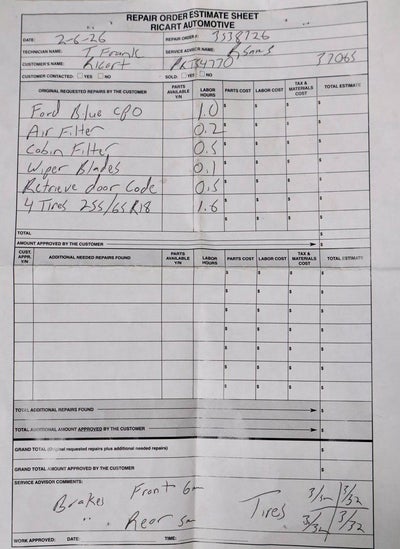 REPAIR ORDER ESTIMATE SHEET
RICART AUTOMOTIVE
DATE: 2-6-26 REPAIR ORDER#: 3538726
TECHNICIAN NAME: T. Frank SERVICE ADVISOR NAME:
CUSTOMER'S NAME: Ricart PKTB4770 37065
CUSTOMER CONTACTED: YES NO SOLD: YES NO
ORIGINAL REQUESTED REPAIRS BY THE CUSTOMER PARTS AVAILABLE Y/N LABOR HOURS PARTS COST LABOR COST TAX & MATERIALS COST TOTAL ESTIMATE
Ford Blue CPO 1.0 $ $ $ $
Air Filter 0.2 $ $ $ $
Cabin Filter 0.5 $ $ $ $
Wiper Blades 0.1 $ $ $ $
Retrieve Door Code 0.5 $ $ $ $
4 Tires 255/65R18 1.6 $ $ $ $
$ $ $ $
TOTAL $
AMOUNT APPROVED BY THE CUSTOMER $
CUST. APPR. Y/N ADDITIONAL NEEDED REPAIRS FOUND PARTS AVAILABLE Y/N LABOR HOURS PARTS COST LABOR COST TAX & MATERIALS COST TOTAL ESTIMATE
$ $ $ $
$ $ $ $
$ $ $ $
$ $ $ $
$ $ $ $
$ $ $ $
$ $ $ $
TOTAL ADDITIONAL REPAIRS FOUND $
TOTAL ADDITIONAL AMOUNT APPROVED BY THE CUSTOMER $
GRAND TOTAL (Original requested repairs plus additional needed repairs) $
GRAND TOTAL AMOUNT APPROVED BY THE CUSTOMER $
SERVICE ADVISOR COMMENTS:
Brakes Front 6m Tires 3/32 3/32
" Rear 5m 3/32 3/32
WORK APPROVED: DATE: TIME: